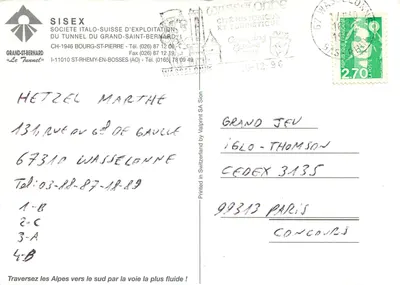 SISEX
SOCIETE ITALO-SUISSE D'EXPLOITATION
DU TUNNEL DU GRAND-SAINT-BERNARD
CH-1946 BOURG-ST-PIERRE - Tél. (026) 87 12
I-11010 ST-RHEMY-EN-BOSSES (AO) - Tél. (0165) 78
GRAND-ST-BERNARD
"Le Tunnel"
67 WASSELONNE
2,70
HETZEL MARTHE
131, RUE DU Gal DE GAULLE
67310 WASSELONNE
Tel: 03-88-87-18-89
1-B
2-C
3-A
4-B
Printed in Switzerland by Vaprint SA Sion
GRAND JEU
iGLO-THOMSON
CEDEX 3135
99313 PARIS
CONCOURS
Traversez les Alpes vers le sud par la voie la plus fluide !